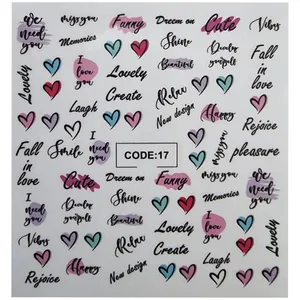 we
need
you
miss you
Funny
Dream on
Vibes
Memories
Shine
Beautiful
Cute
I
love
you
Lovely
Relax
Create
Laugh
New design
Happy
Rejoice
Fall
in
love
Smile
I
need
you
CODE:17
miss you
pleasure
Cute
Dream on
Funny
miss you
we
need
you
I
need
you
Shine
Beautiful
Relax
Memories
Fall
in
love
Laugh
Lovely
Vibes
I
love
you
Create
Lovely
Rejoice
Happy
New design